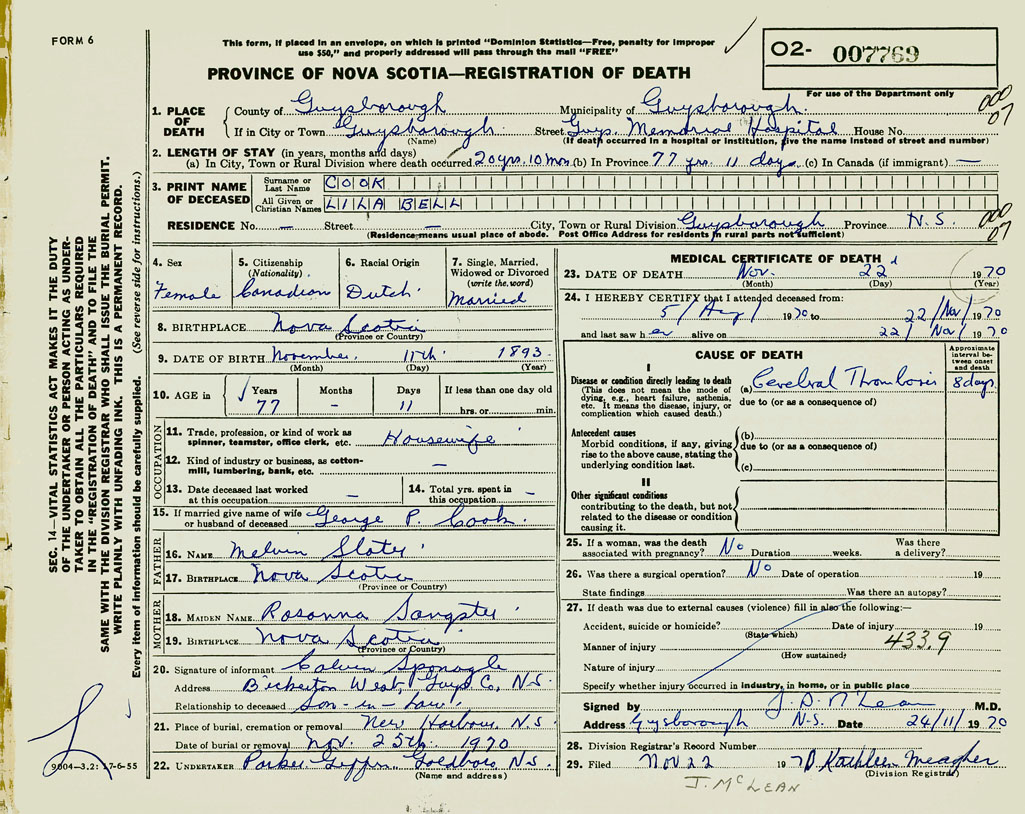 FORM 6
This form, if placed in an envelope, on which is printed "Dominion Statistics—Free, penalty for improper
use $50," and properly addressed will pass through the mail "FREE"
O2- 007769
For use of the Department only
PROVINCE OF NOVA SCOTIA—REGISTRATION OF DEATH
000
07
1. PLACE OF DEATH County of Guysborough Municipality of Guysborough
If in City or Town Guysborough Street Guys. Memorial Hospital House No.
(Name) (If death occurred in a hospital or institution, give the name instead of street and number)
2. LENGTH OF STAY (in years, months and days)
(a) In City, Town or Rural Division where death occurred 20 yrs. 10 mos (b) In Province 77 yrs 11 days (c) In Canada (if immigrant) —
3. PRINT NAME OF DECEASED Surname or Last Name COOK
All Given or Christian Names LILA BELL
RESIDENCE No. — Street — City, Town or Rural Division Guysborough Province N.S.
(Residence means usual place of abode. Post Office Address for residents in rural parts not sufficient)
000
07
4. Sex Female
5. Citizenship (Nationality) Canadian
6. Racial Origin Dutch
7. Single, Married, Widowed or Divorced (write the word) Married
8. BIRTHPLACE Nova Scotia
(Province or Country)
9. DATE OF BIRTH November 11th 1893
(Month) (Day) (Year)
10. AGE in Years 77 Months - Days 11 If less than one day old hrs. or min.
OCCUPATION
11. Trade, profession, or kind of work as spinner, teamster, office clerk, etc. Housewife
12. Kind of industry or business, as cotton-mill, lumbering, bank, etc. —
13. Date deceased last worked at this occupation —
14. Total yrs. spent in this occupation -
15. If married give name of wife or husband of deceased George P. Cook
FATHER
16. NAME Melvin Slater
17. BIRTHPLACE Nova Scotia
(Province or Country)
MOTHER
18. MAIDEN NAME Rosanna Sangster
19. BIRTHPLACE Nova Scotia
(Province or Country)
20. Signature of informant Calvin Sponagle
Address Bickerton West, Guys Co, N.S.
Relationship to deceased Son-in-law
21. Place of burial, cremation or removal New Harbour, N.S.
Date of burial or removal Nov. 25th 1970
22. UNDERTAKER Parker Giffin, Goldboro, N.S.
(Name and address)
MEDICAL CERTIFICATE OF DEATH
23. DATE OF DEATH Nov. 22 1970
(Month) (Day) (Year)
24. I HEREBY CERTIFY that I attended deceased from:
5/Aug/ 1970 to 22/Nov/1970
and last saw her alive on 22/Nov/1970
CAUSE OF DEATH
Approximate interval between onset and death
I
Disease or condition directly leading to death (a) Cerebral Thrombosis 8 days
(This does not mean the mode of dying, e.g., heart failure, asthenia, etc. It means the disease, injury, or complication which caused death.)
due to (or as a consequence of)
Antecedent causes
Morbid conditions, if any, giving rise to the above cause, stating the underlying condition last.
(b)
due to (or as a consequence of)
(c)
II
Other significant conditions
contributing to the death, but not related to the disease or condition causing it.
25. If a woman, was the death associated with pregnancy? No Duration weeks. Was there a delivery?
26. Was there a surgical operation? No Date of operation 19
State findings Was there an autopsy?
27. If death was due to external causes (violence) fill in also the following:—
Accident, suicide or homicide? Date of injury 19
(State which)
Manner of injury 433.9
(How sustained)
Nature of injury
Specify whether injury occurred in industry, in home, or in public place
Signed by J. D. N. Lean M.D.
Address Guysborough N.S. Date 24/11/1970
28. Division Registrar's Record Number
29. Filed NOV 22 1970 D. Kathleen Meagher
(Division Registrar)
J. McLEAN
SEC. 14—VITAL STATISTICS ACT MAKES IT THE DUTY
OF THE UNDERTAKER OR PERSON ACTING AS UNDER-
TAKER TO OBTAIN ALL THE PARTICULARS REQUIRED
IN THE "REGISTRATION OF DEATH" AND TO FILE THE
SAME WITH THE DIVISION REGISTRAR WHO SHALL ISSUE THE BURIAL PERMIT.
WRITE PLAINLY WITH UNFADING INK. THIS IS A PERMANENT RECORD.
Every item of information should be carefully supplied. (See reverse side for instructions.)
9004—3,2: 17-6-55